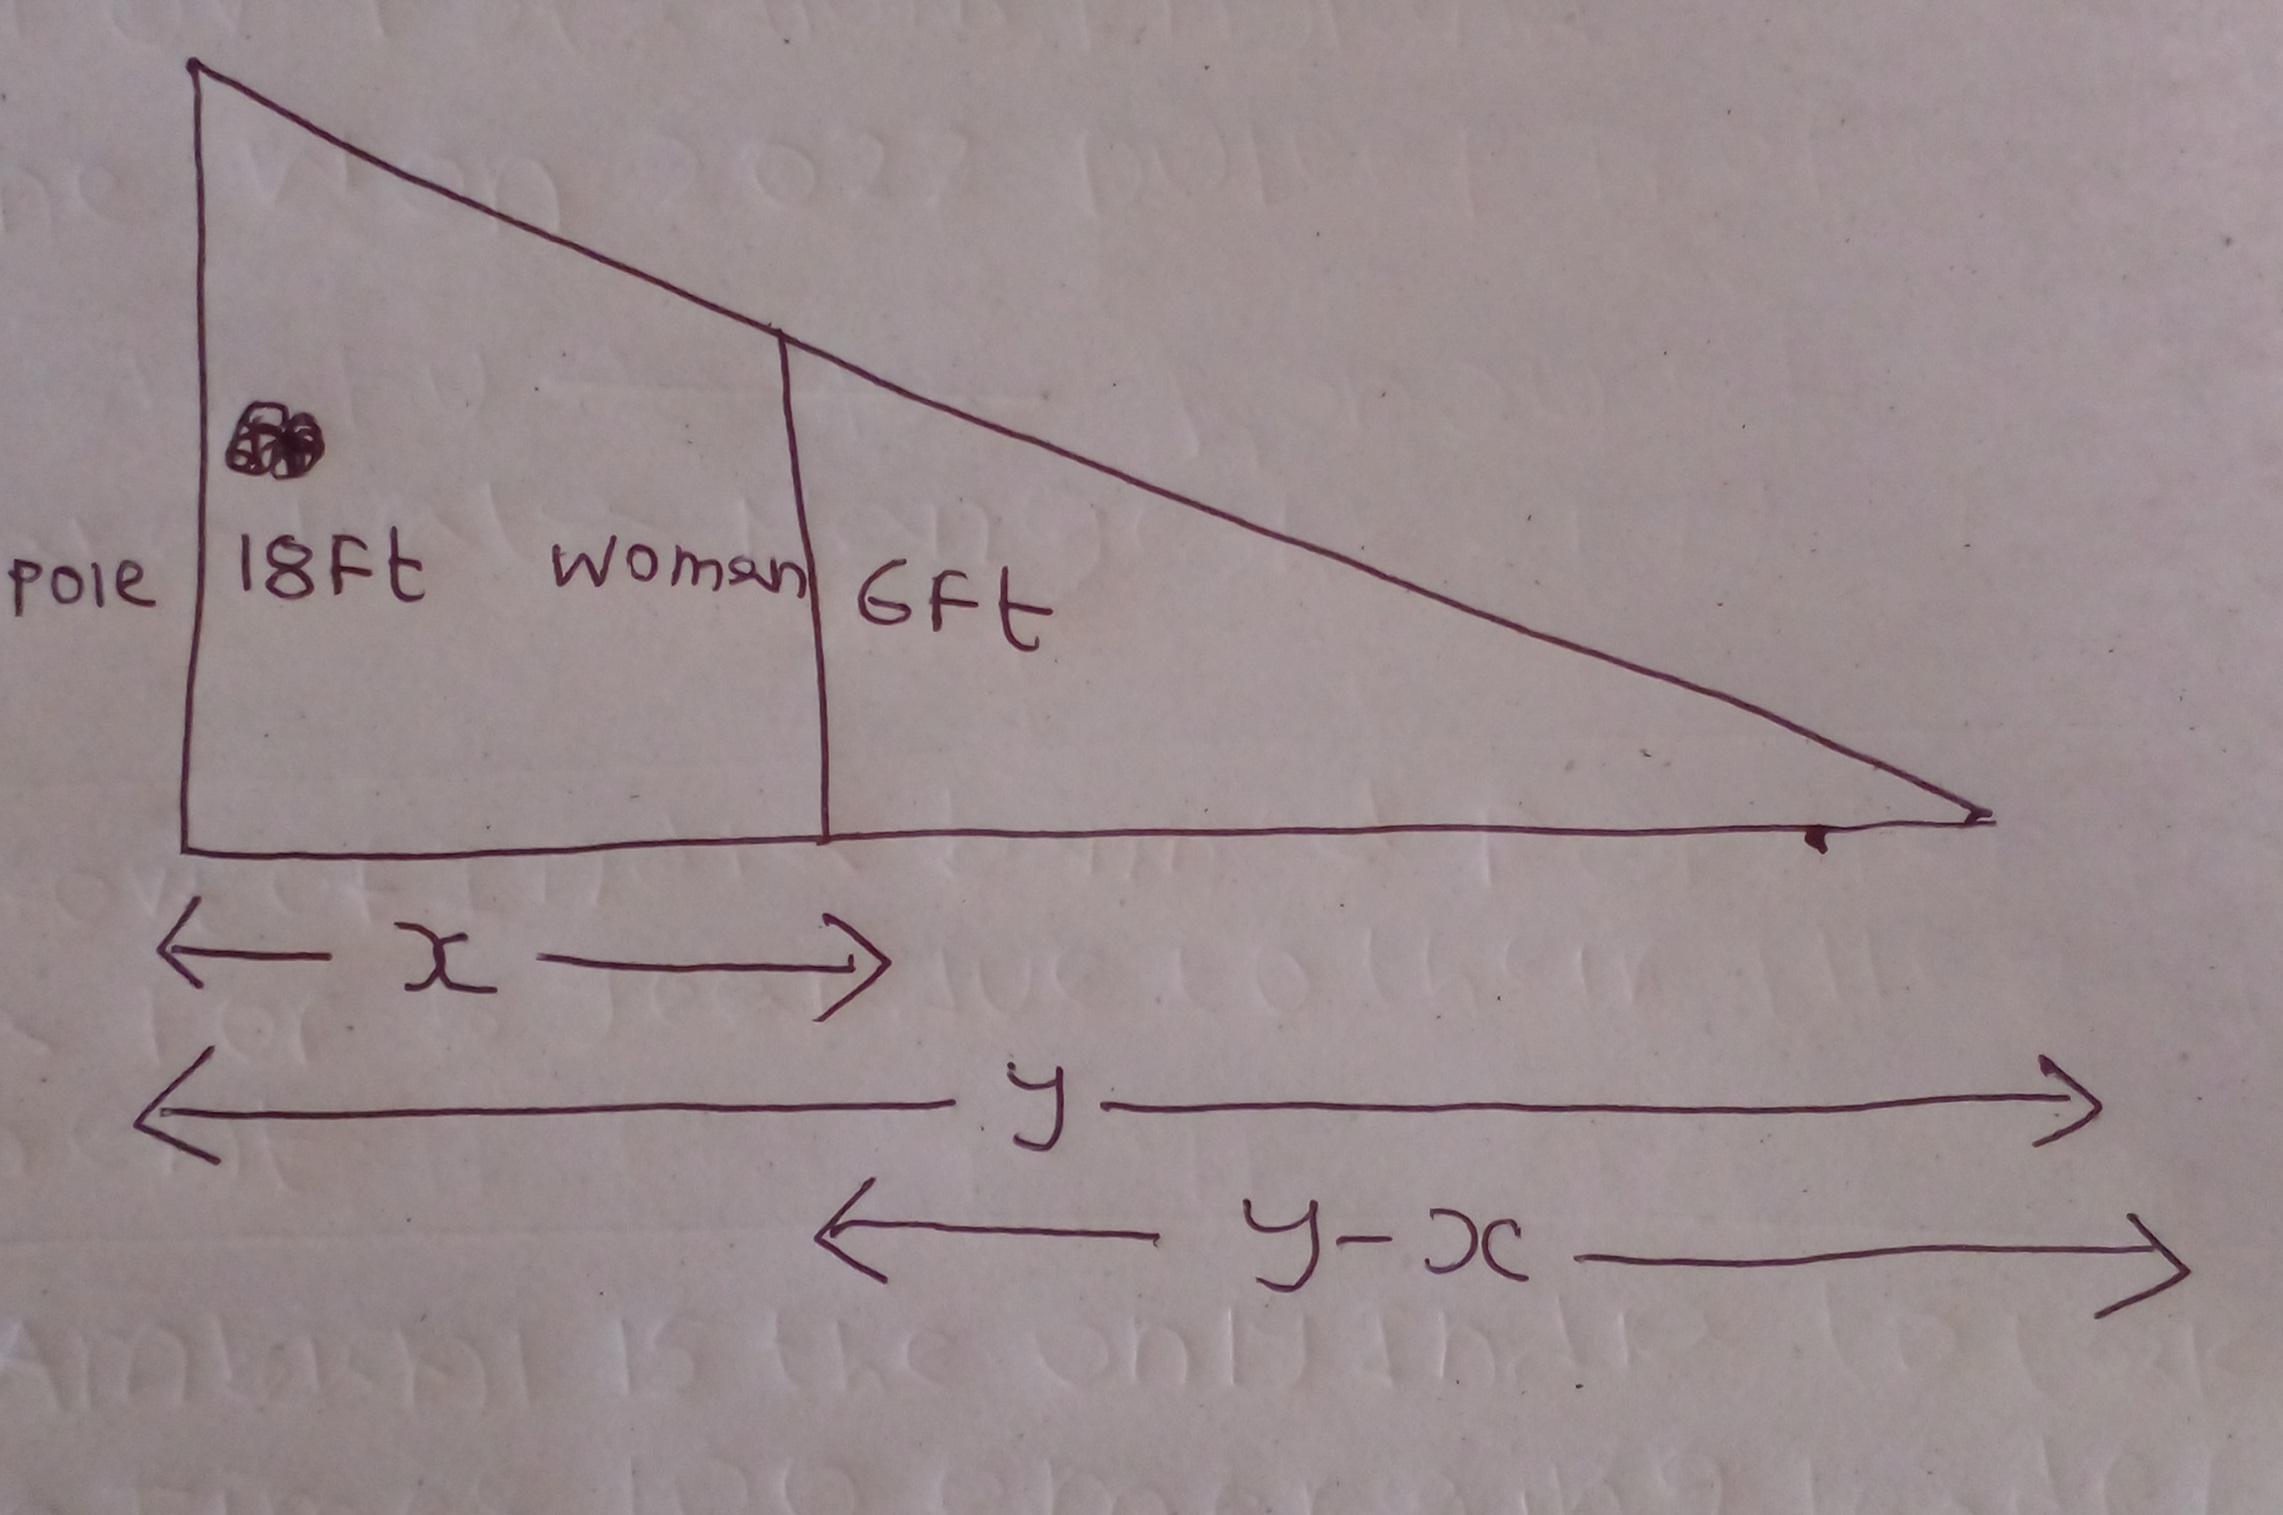 pole 18Ft woman 6Ft
x
y
y-x